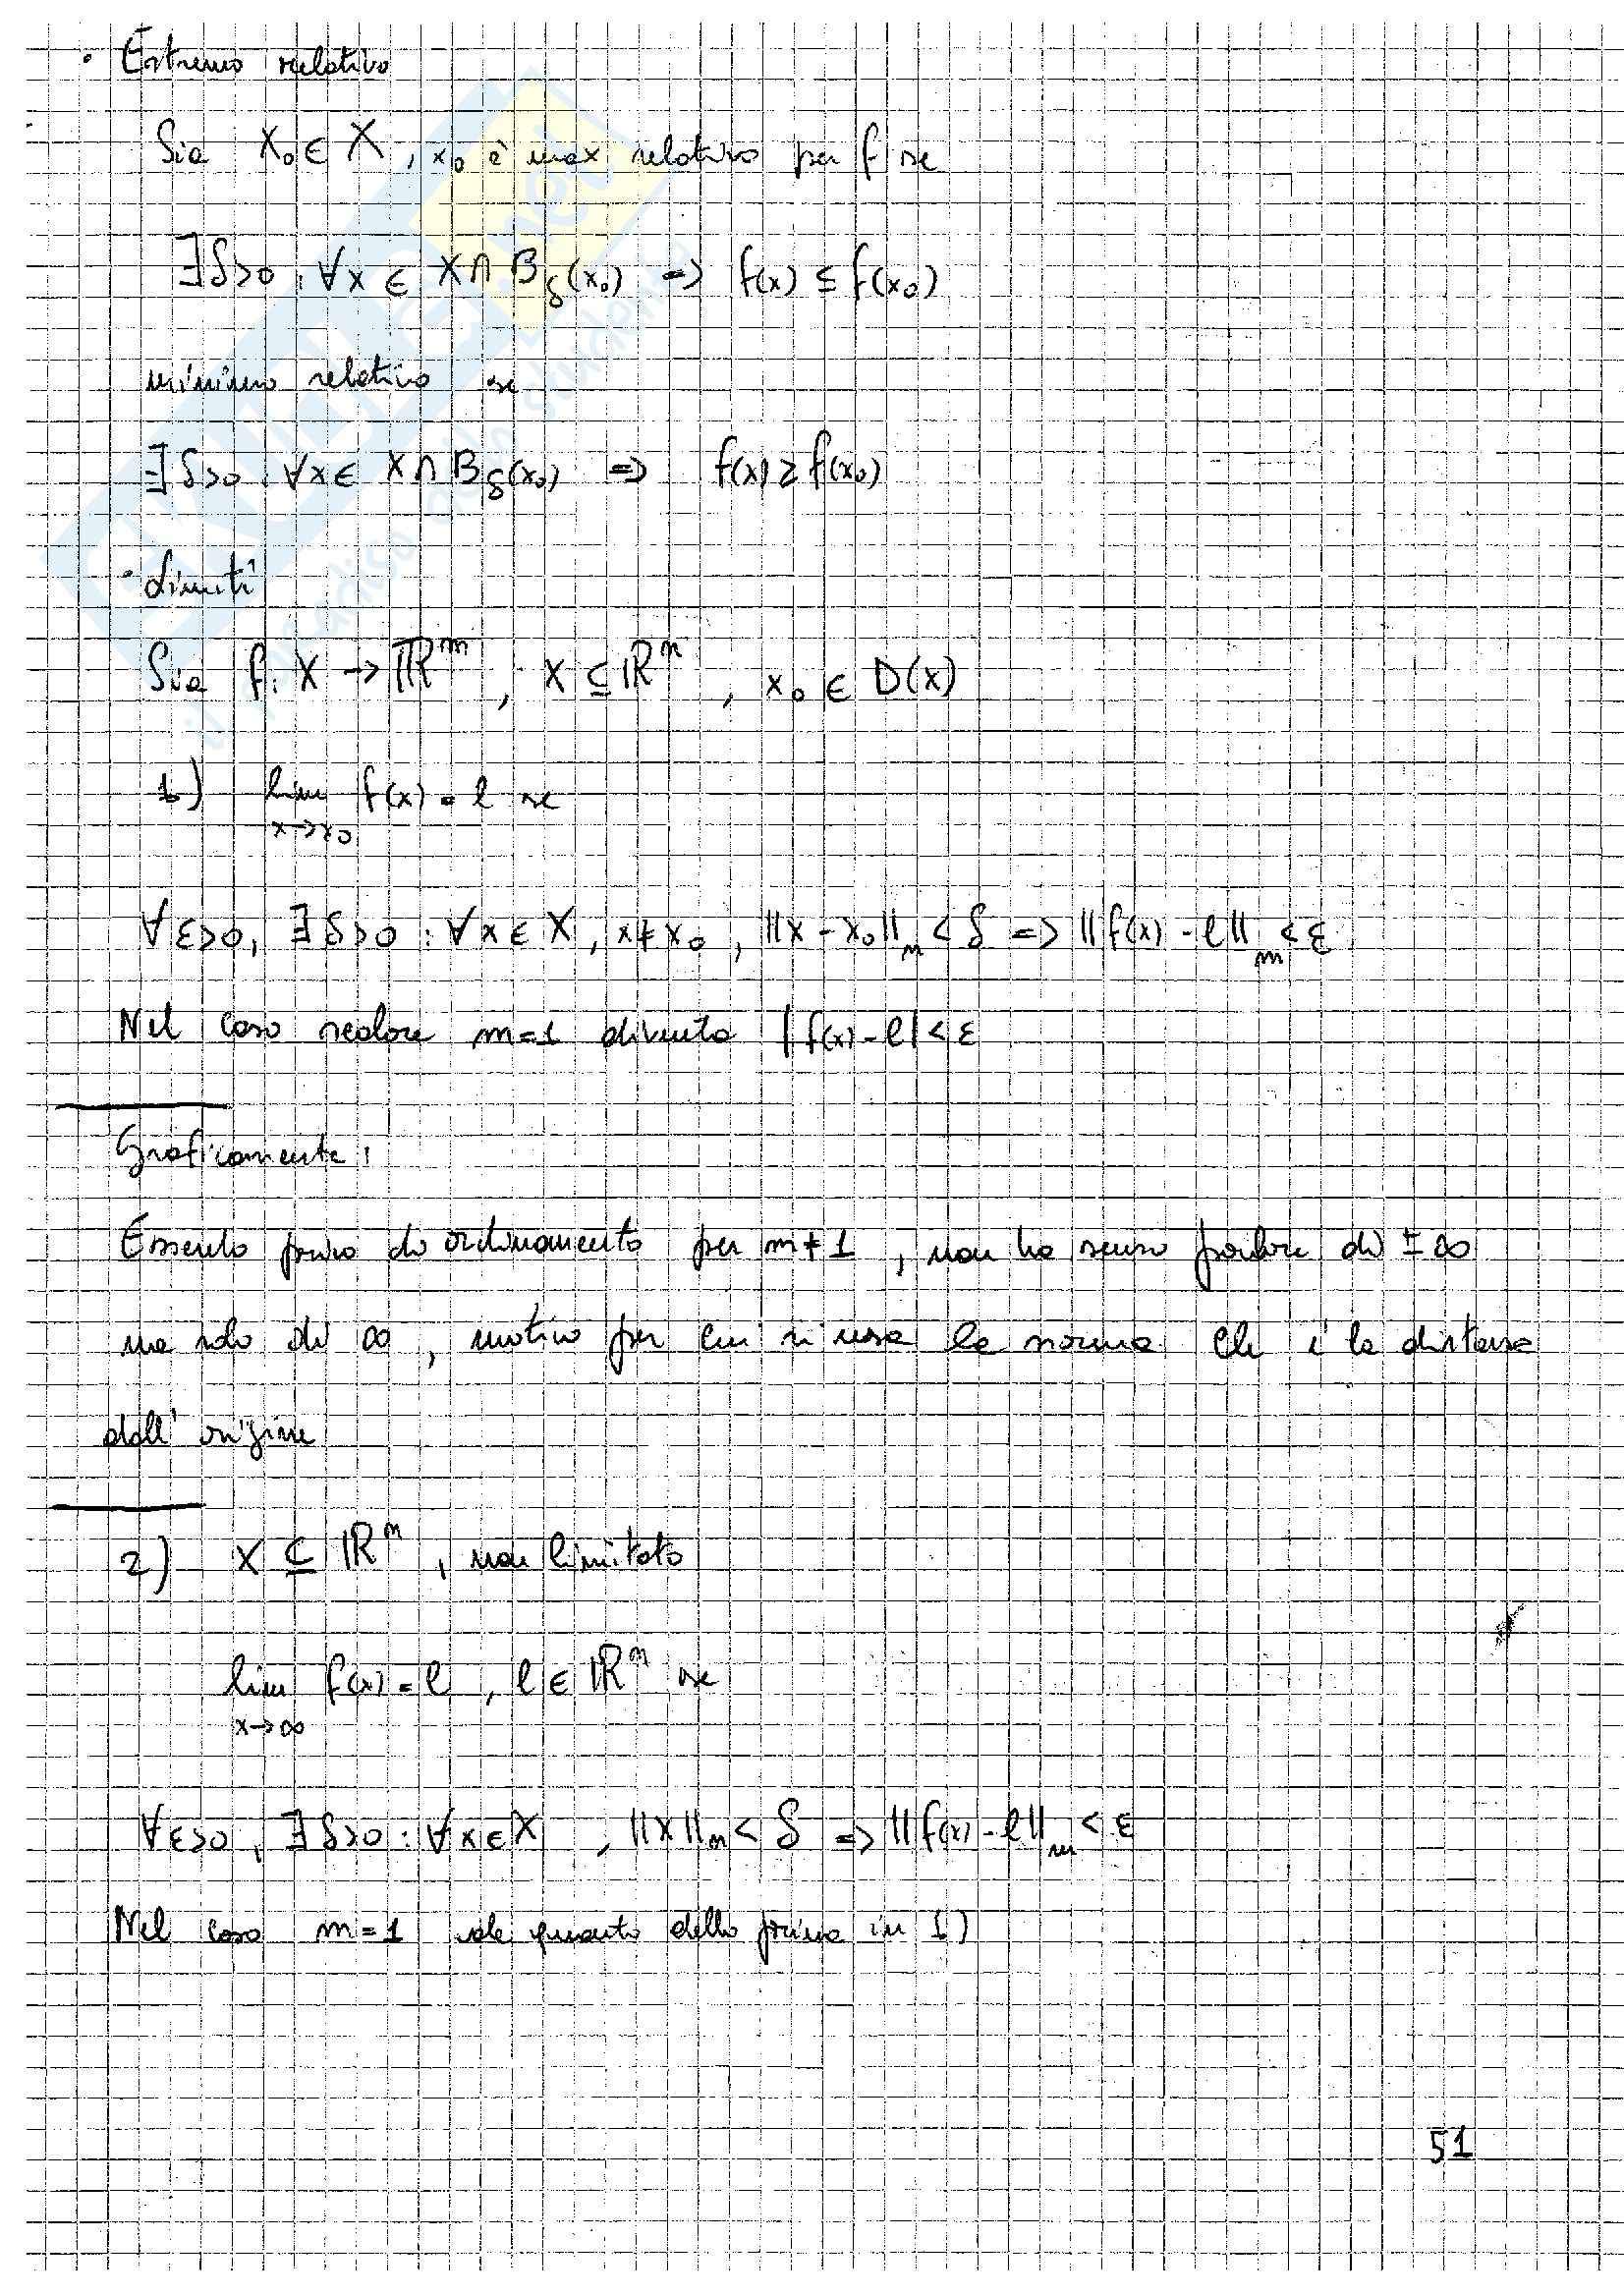 • Estremo relativo
Sia x₀ ∈ X, x₀ è max relativo per f se
∃δ>0 : ∀x ∈ X∩B_δ(x₀) => f(x) ≤ f(x₀)
minimo relativo se
∃δ>0 : ∀x ∈ X∩B_δ(x₀) => f(x) ≥ f(x₀)
• Limiti
Sia f: X → ℝᵐ, X ⊆ ℝⁿ, x₀ ∈ D(x)
1) lim f(x) = l se
x→x₀
∀ε>0, ∃δ>0 : ∀x ∈ X, x≠x₀, ||x - x₀||ₙ < δ => ||f(x) - l||ₘ < ε
Nel caso scalare m=1 diventa |f(x) - l| < ε
Graficamente:
Essendo privo di ordinamento per m≠1, non ha senso parlare di ±∞
ma solo di ∞, motivo per cui si usa la norma che è la distanza
dall'origine
2) X ⊆ ℝⁿ, non limitato
lim f(x) = l, l ∈ ℝⁿ se
x→∞
∀ε>0, ∃δ>0 : ∀x ∈ X, ||x||ₙ < δ => ||f(x) - l||ₘ < ε
Nel caso m=1 vale quanto detto prima in 1)
51
il paradiso dello studente